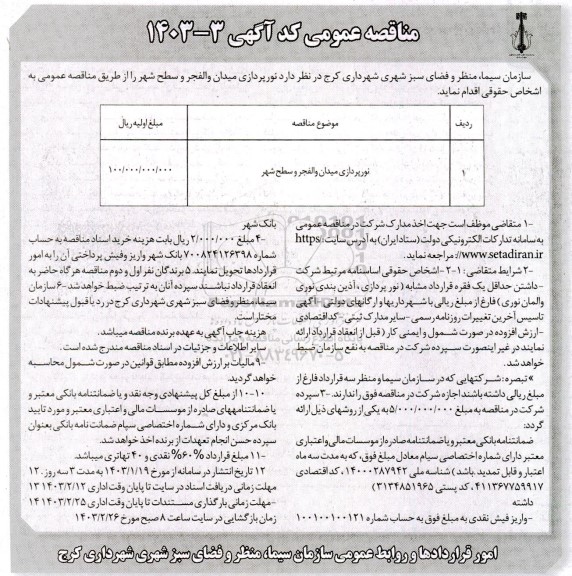 مناقصه عمومی کد آگهی ۳-۱۴۰۳
سازمان سیما، منظر و فضای سبز شهری شهرداری کرج در نظر دارد نورپردازی میدان والفجر و سطح شهر را از طریق مناقصه عمومی به
اشخاص حقوقی اقدام نماید.
ردیف موضوع مناقصه مبلغ اولیه ریال
۱ نورپردازی میدان والفجر و سطح شهر ۱۰۰/۰۰۰/۰۰۰/۰۰۰
۱- متقاضی موظف است جهت اخذ مدارک شرکت در مناقصه عمومی
به سامانه تدارکات الکترونیکی دولت (ستاد ایران) به آدرس سایت https:
//www.setadiran.ir مراجعه نماید.
۲- شرایط متقاضی: ۱-۲- اشخاص حقوقی اساسنامه مرتبط شرکت
- داشتن حداقل یک فقره قرارداد مشابه (نور پردازی، آذین بندی نوری
والمان نوری) فارغ از مبلغ ریالی با شهرداریها و ارگانهای دولتی - آگهی
تاسیس آخرین تغییرات روزنامه رسمی - سایر مدارک ثبتی - کد اقتصادی
- ارزش افزوده در صورت شمول و ایمنی کار (قبل از انعقاد قرارداد ارائه
نمایند در غیر اینصورت سپرده شرکت در مناقصه به نفع سازمان ضبط
خواهد شد.
* تبصره: شرکتهایی که در سازمان سیما و منظر سه قرارداد فارغ از
مبلغ ریالی داشته باشند اجازه شرکت در مناقصه فوق را ندارند. ۳- سپرده
شرکت در مناقصه به مبلغ ۵/۰۰۰/۰۰۰/۰۰۰ به یکی از روشهای ذیل ارائه
گردد:
ضمانتنامه بانکی معتبر و یا ضمانتنامه صادره از موسسات مالی و اعتباری
معتبر دارای شماره اختصاصی سپام معادل مبلغ فوق، که به مدت سه ماه
اعتبار و قابل تمدید باشد) شناسه ملی ۱۴۰۰۰۲۸۷۹۴۲، کد اقتصادی
۴۱۱۳۶۷۷۵۹۹۱۷، کد پستی ۳۱۳۴۸۵۱۹۶۵)
داشته
- واریز فیش نقدی به مبلغ فوق به حساب شماره ۱۰۰۱۰۰۱۰۰۱۲۱
بانک شهر
۴- مبلغ ۲/۰۰۰/۰۰۰ ریال بابت هزینه خرید اسناد مناقصه به حساب
شماره ۷۰۰۸۲۴۱۲۶۳۹۸ بانک شهر واریز و فیش پرداختی آن را به امور
قراردادها تحویل نمایند. ۵- برندگان نفر اول و دوم مناقصه هرگاه حاضر به
انعقاد قرارداد نباشند سپرده آنان به ترتیب ضبط خواهد شد. ۶- سازمان
سیما، منظر و فضای سبز شهری شهرداری کرج در رد یا قبول پیشنهادات
مختار است.
هزینه چاپ آگهی به عهده برنده مناقصه میباشد.
سایر اطلاعات و جزئیات در اسناد مناقصه مندرج شده است.
۹- مالیات بر ارزش افزوده مطابق قوانین در صورت شمول محاسبه
خواهد گردید.
۱۰- ۱۰٪ از مبلغ کل پیشنهادی وجه نقد و یا ضمانتنامه بانکی معتبر و
یا ضمانتنامههای صادره از موسسات مالی و اعتباری معتبر و مورد تایید
بانک مرکزی و دارای شماره اختصاصی سپام ضمانت نامه بانکی بعنوان
سپرده حسن انجام تعهدات از برنده اخذ خواهد شد.
۱۱- مبلغ قرارداد ۶۰٪ نقدی و ۴۰ تهاتری میباشد.
۱۲ تاریخ انتشار در سامانه از مورخ ۱۴۰۳/۱/۱۹ به مدت ۳ سه روز. ۱۲
مهلت زمانی دریافت اسناد در سایت تا پایان وقت اداری ۱۴۰۳/۲/۱۲ ۱۳
- مهلت زمانی بارگذاری مستندات تا پایان وقت اداری ۱۴۰۳/۲/۲۵ ۱۴
زمان بازگشایی در سایت ساعت ۸ صبح مورخ ۱۴۰۳/۲/۲۶
امور قراردادها و روابط عمومی سازمان سیما، منظر و فضای سبز شهری شهرداری کرج